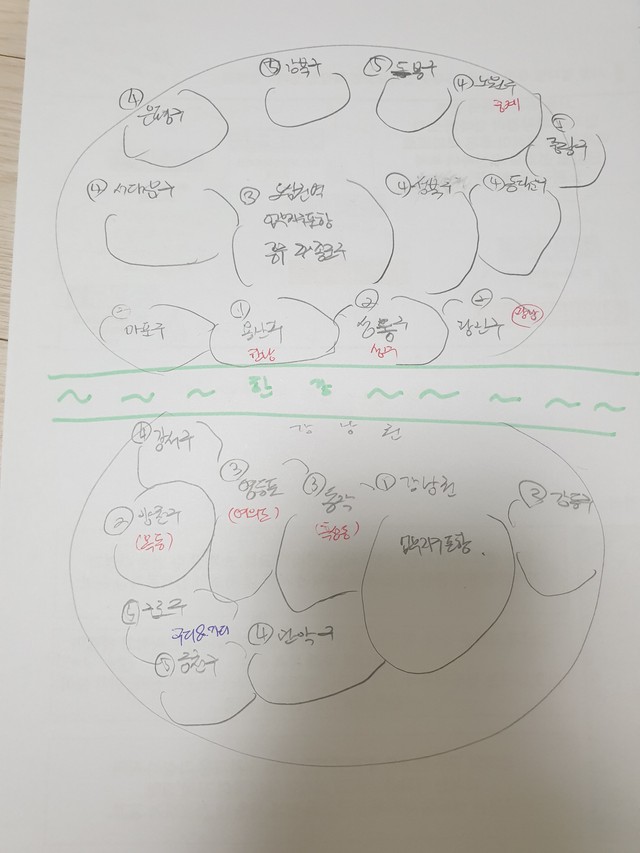 ⑤ 강북구
⑤ 도봉구
④ 노원구
중계
④ 은평구
⑤ 중랑구
④ 서대문구
③ 도심권역
업무지구포함
중구 & 종로구
④ 성북구
④ 동대문구
② 마포구
① 용산구
한남
② 성동구
성수
② 광진구
광장
~ ~ ~ 한 강 ~ ~ ~ ~ ~
강 남 권
④ 강서구
③ 영등포
(여의도)
③ 동작
(흑석동)
① 강남권
업무지구포함.
③ 강동구
② 양천구
(목동)
⑤ 구로구
구디&가디
④ 관악구
⑤ 금천구